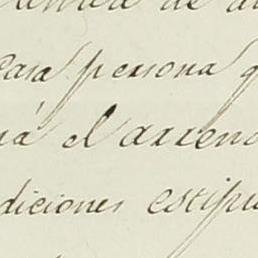 de
persona q
rá el arren
diciones estipu